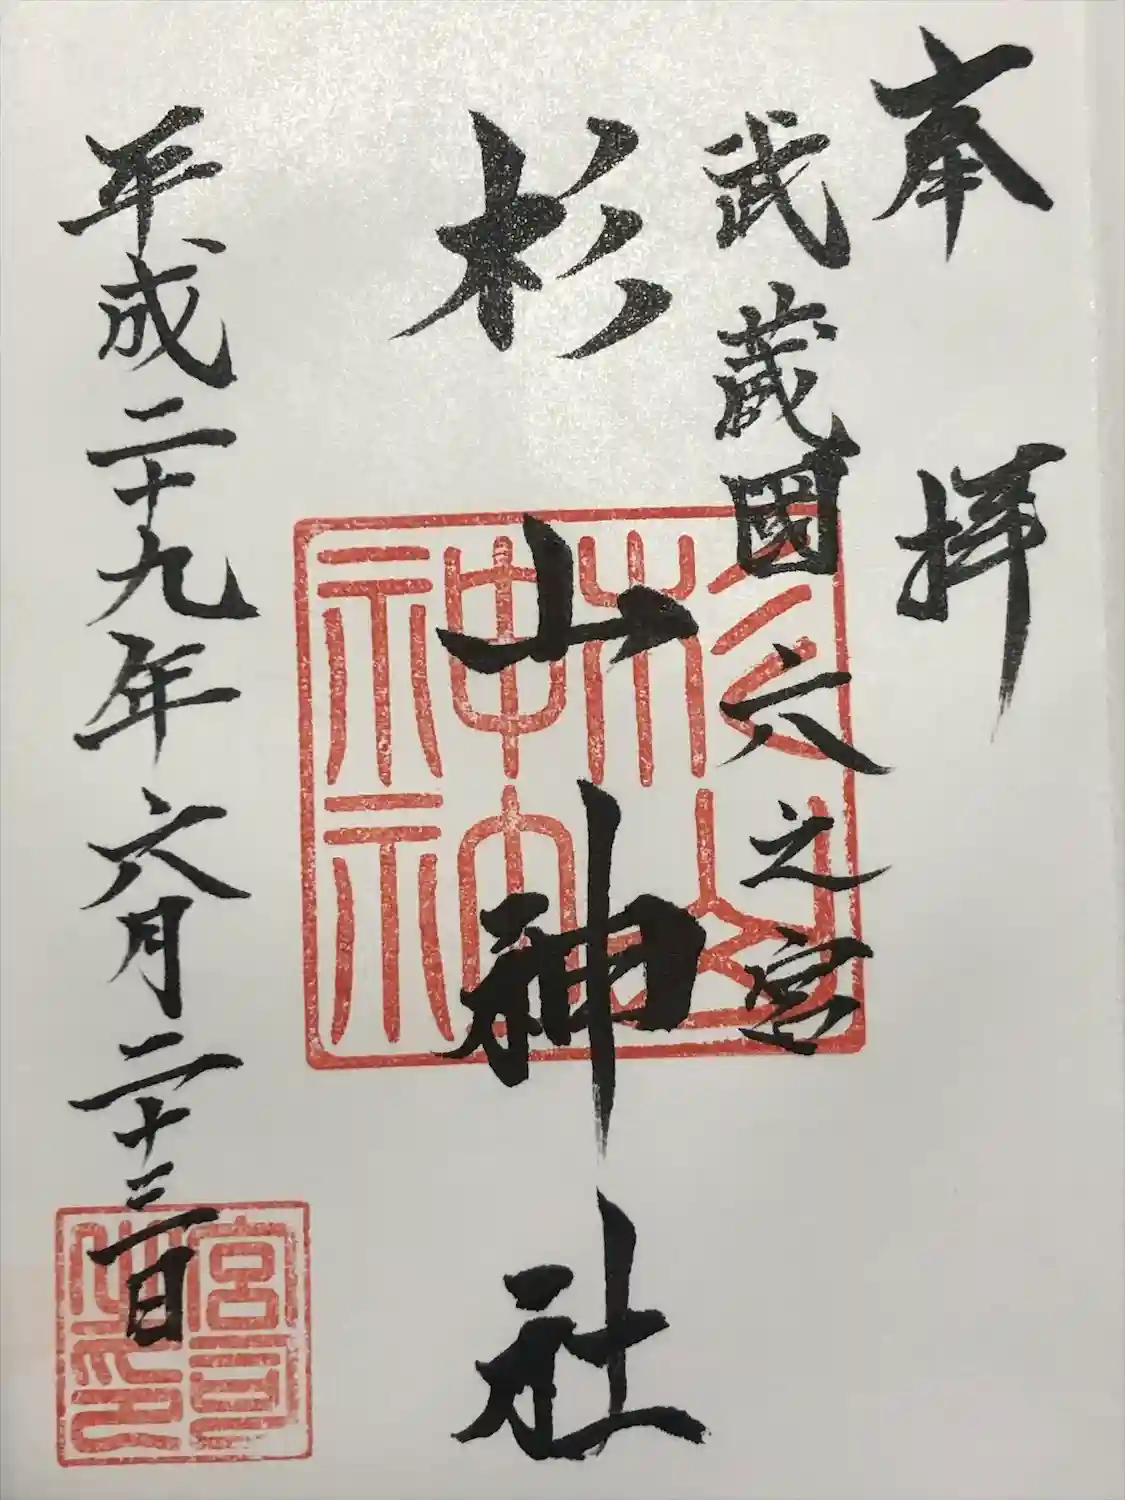 奉拝
武蔵國六之宮
杉山神社
平成二十九年六月二十三日
杉山
神社
宮司
之印